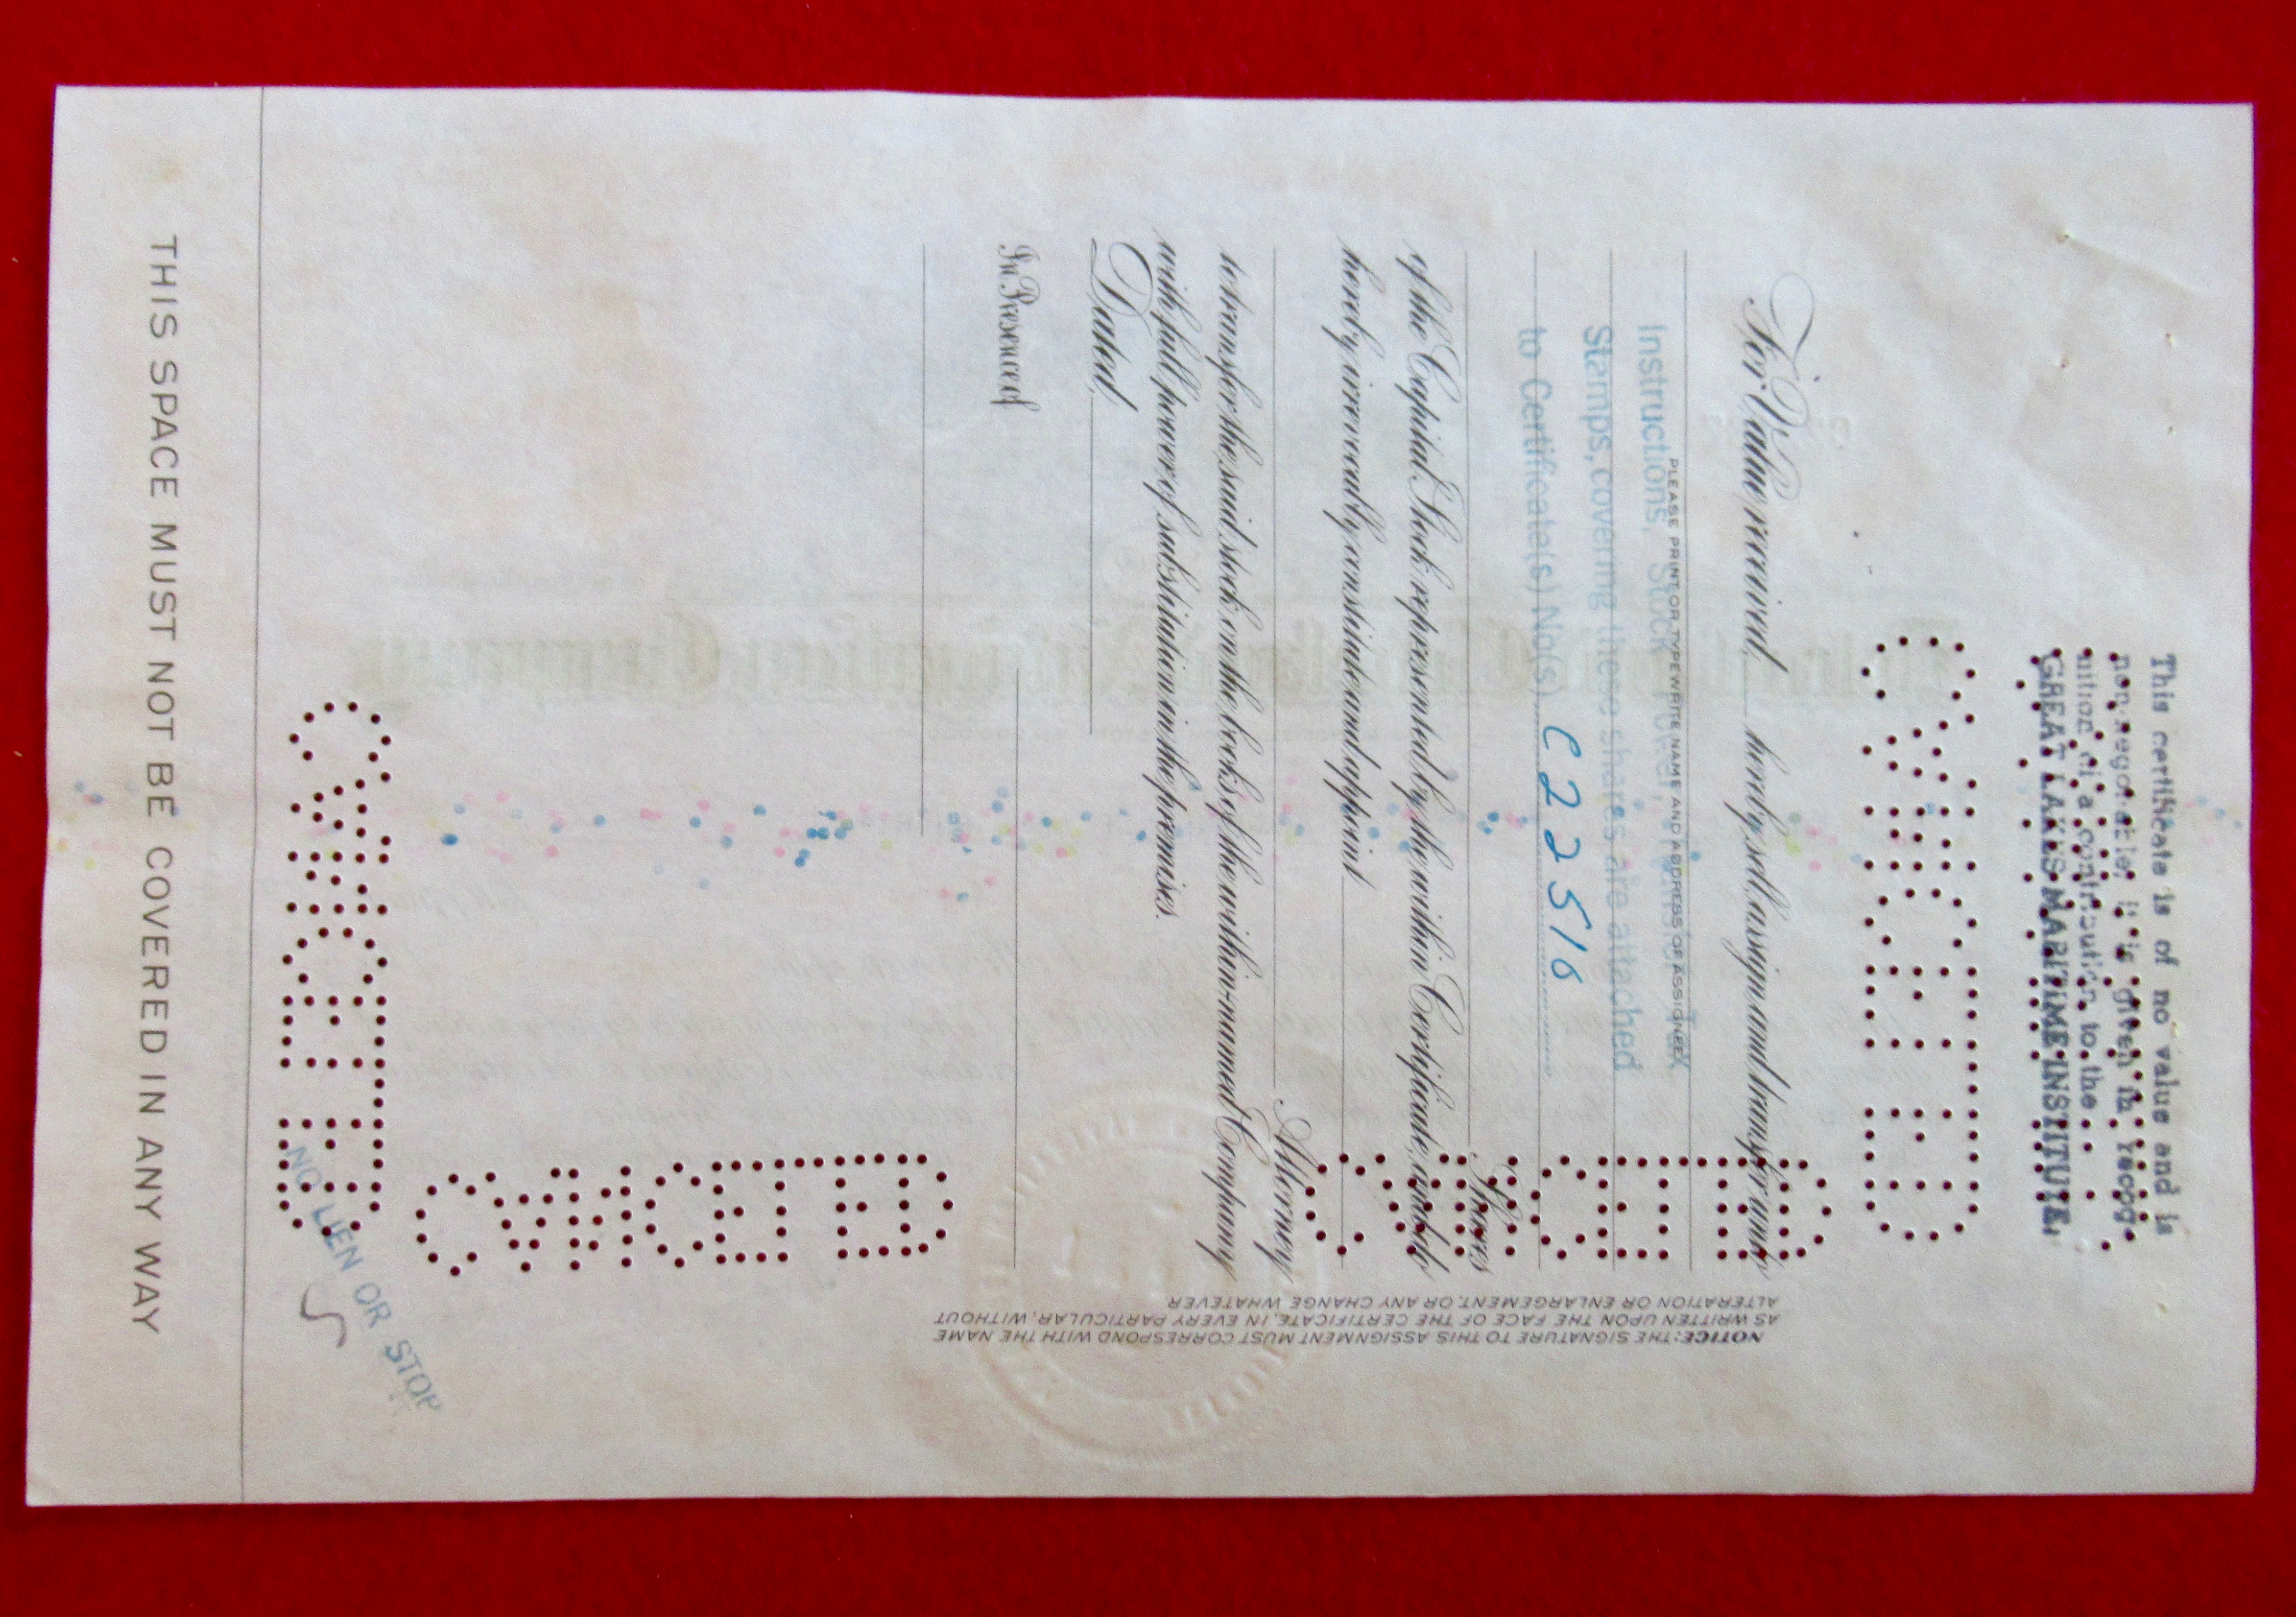 This certificate is of no value and is
non-negotiable; it is given in recog-
nition of a contribution to the
GREAT LAKES MARITIME INSTITUTE.
CANCELLED
For Value received, hereby sell, assign and transfer unto
PLEASE PRINT OR TYPEWRITE NAME AND ADDRESS OF ASSIGNEE
Instructions, Stock Transfer Tax
Stamps, covering these shares are attached
to Certificate(s) No(s). C 22516
Shares
of the Capital Stock represented by the within Certificate, and do
hereby irrevocably constitute and appoint
Attorney
to transfer the said stock on the books of the within-named Company
with full power of substitution in the premises.
Dated,
In Presence of
CANCELLED
CANCELLED
CANCELLED
NOTICE: THE SIGNATURE TO THIS ASSIGNMENT MUST CORRESPOND WITH THE NAME
AS WRITTEN UPON THE FACE OF THE CERTIFICATE, IN EVERY PARTICULAR, WITHOUT
ALTERATION OR ENLARGEMENT, OR ANY CHANGE WHATEVER
NO LIEN OR STOP
THIS SPACE MUST NOT BE COVERED IN ANY WAY